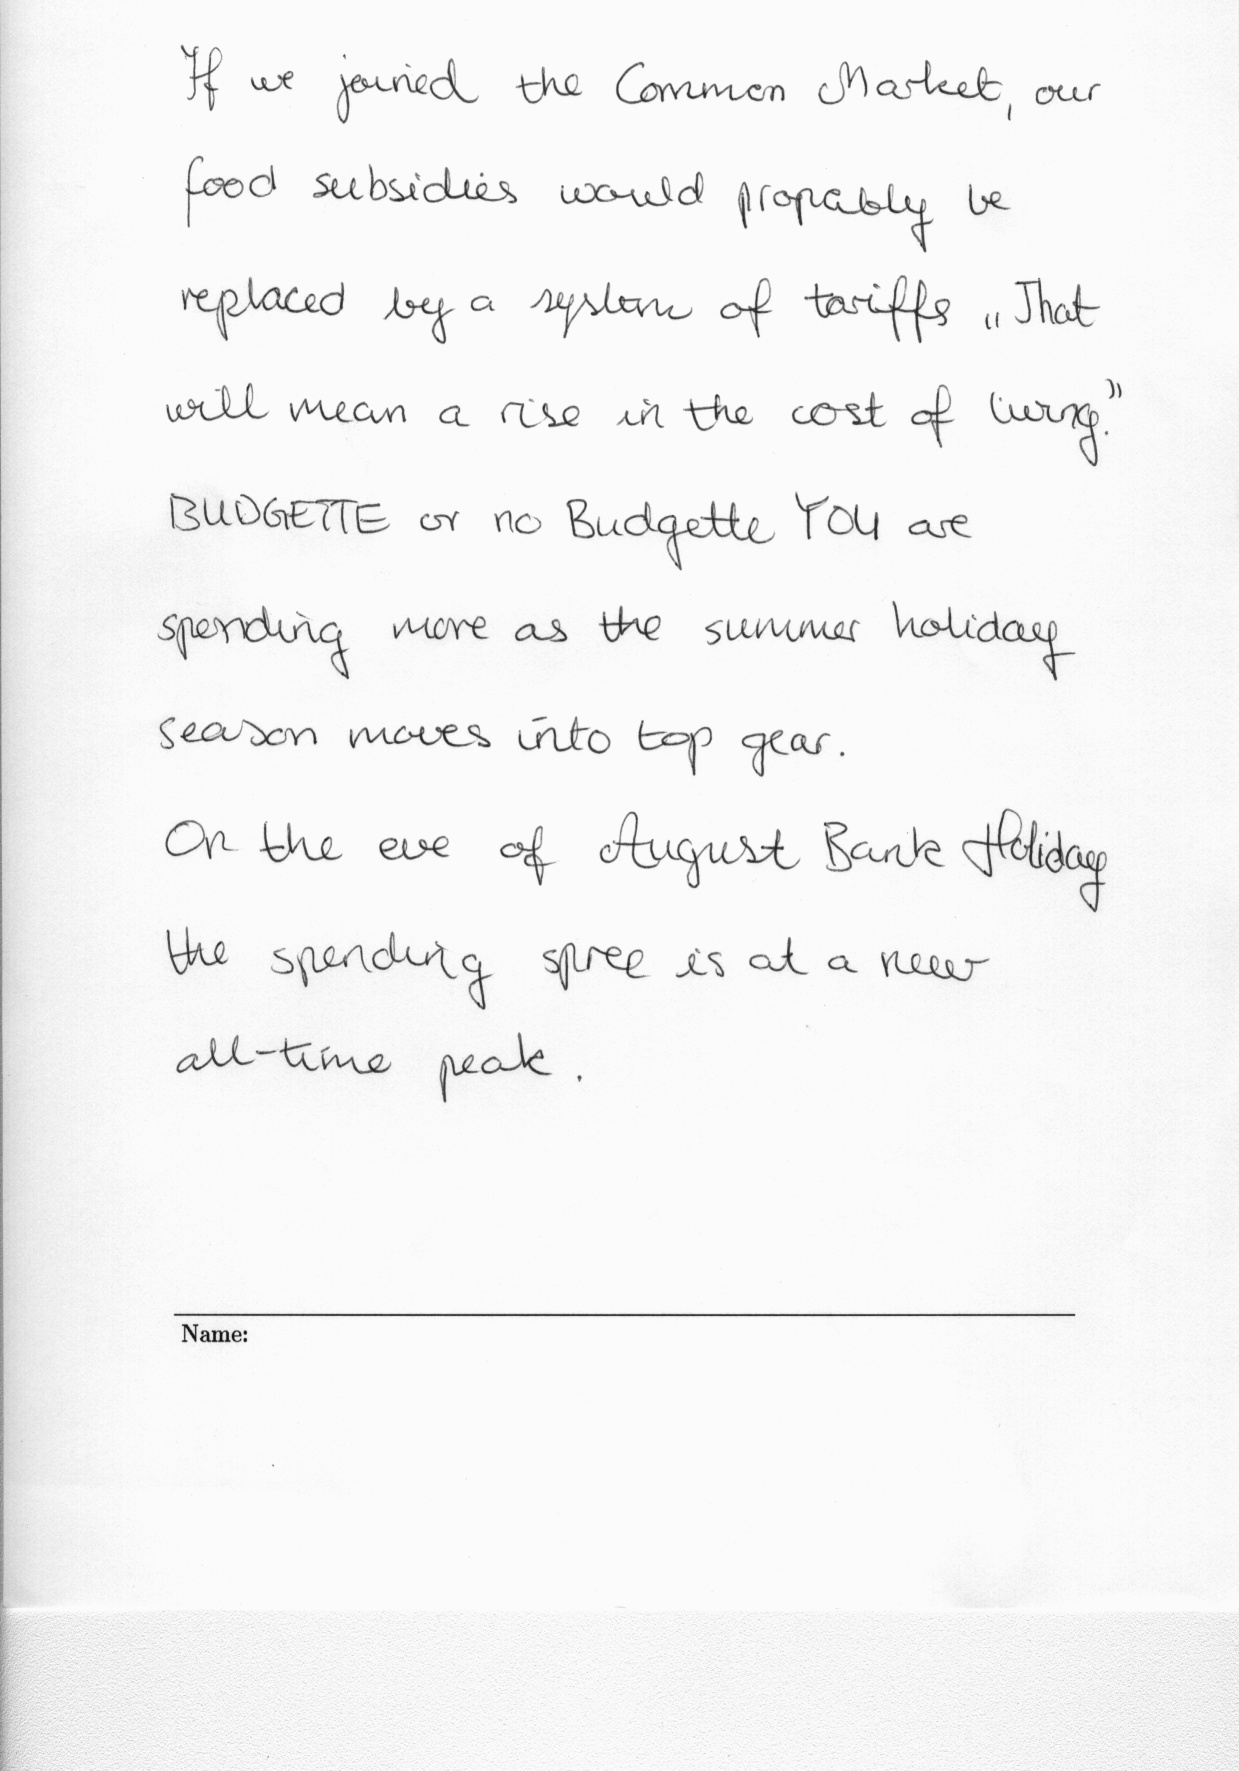 If we joined the Common Market, our
food subsidies would propably be
replaced by a system of tariffs „That
will mean a rise in the cost of living.”
BUDGETTE or no Budgette YOU are
spending more as the summer holiday
season moves into top gear.
On the eve of August Bank Holiday
the spending spree is at a new
all-time peak.
Name: